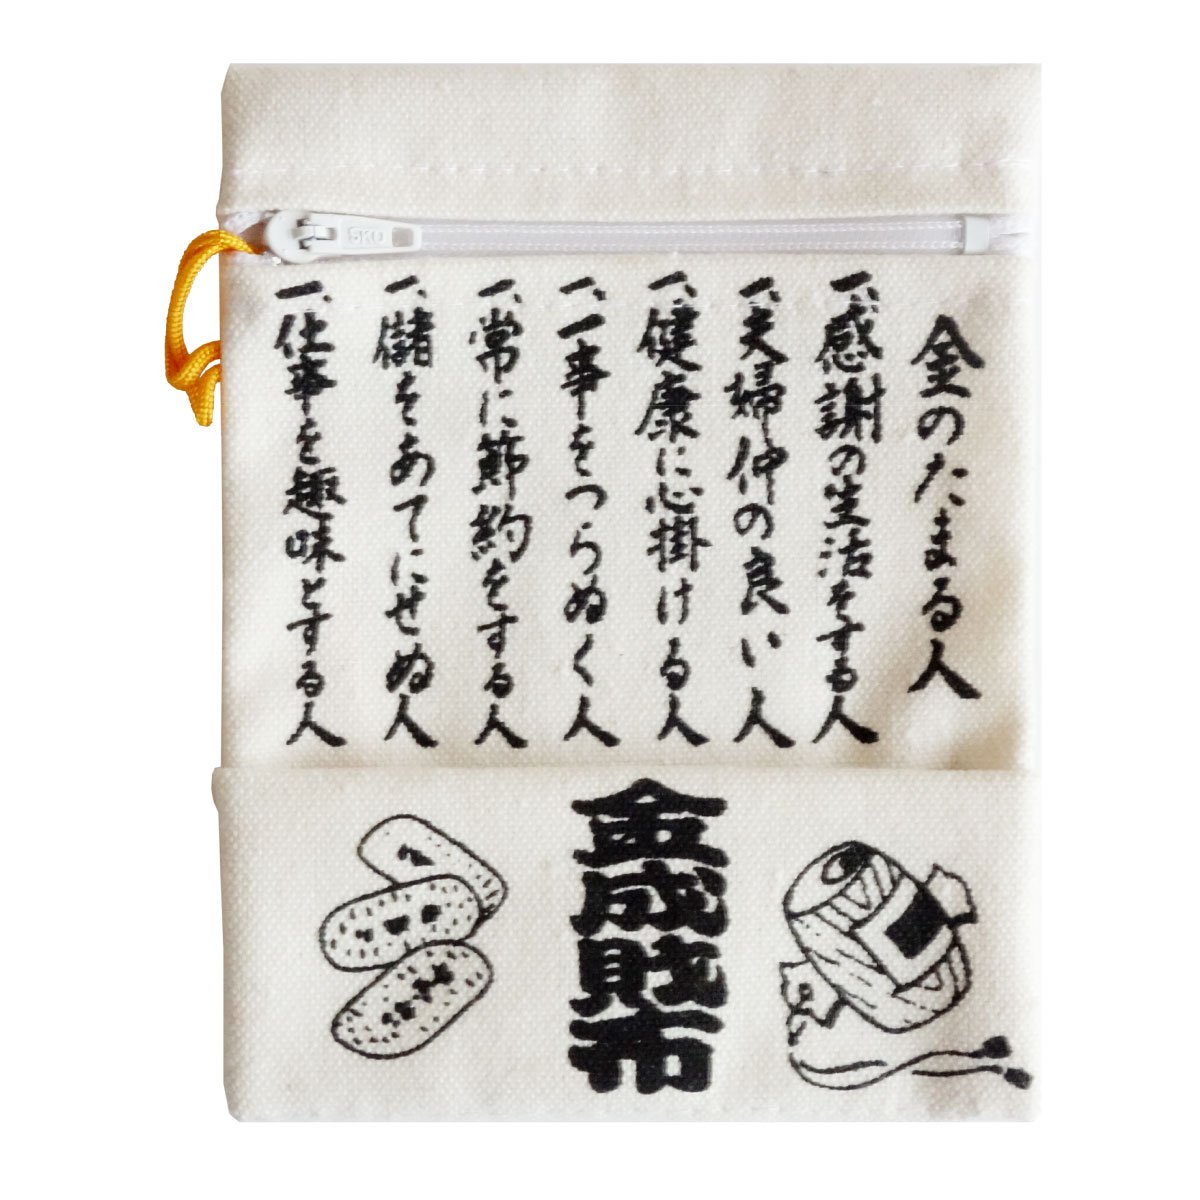 金のたまる人
一、感謝の生活をする人
一、夫婦仲の良い人
一、健康に心掛ける人
一、一事をつらぬく人
一、常に節約をする人
一、儲をあてにせぬ人
一、仕事を趣味とする人
金成財布